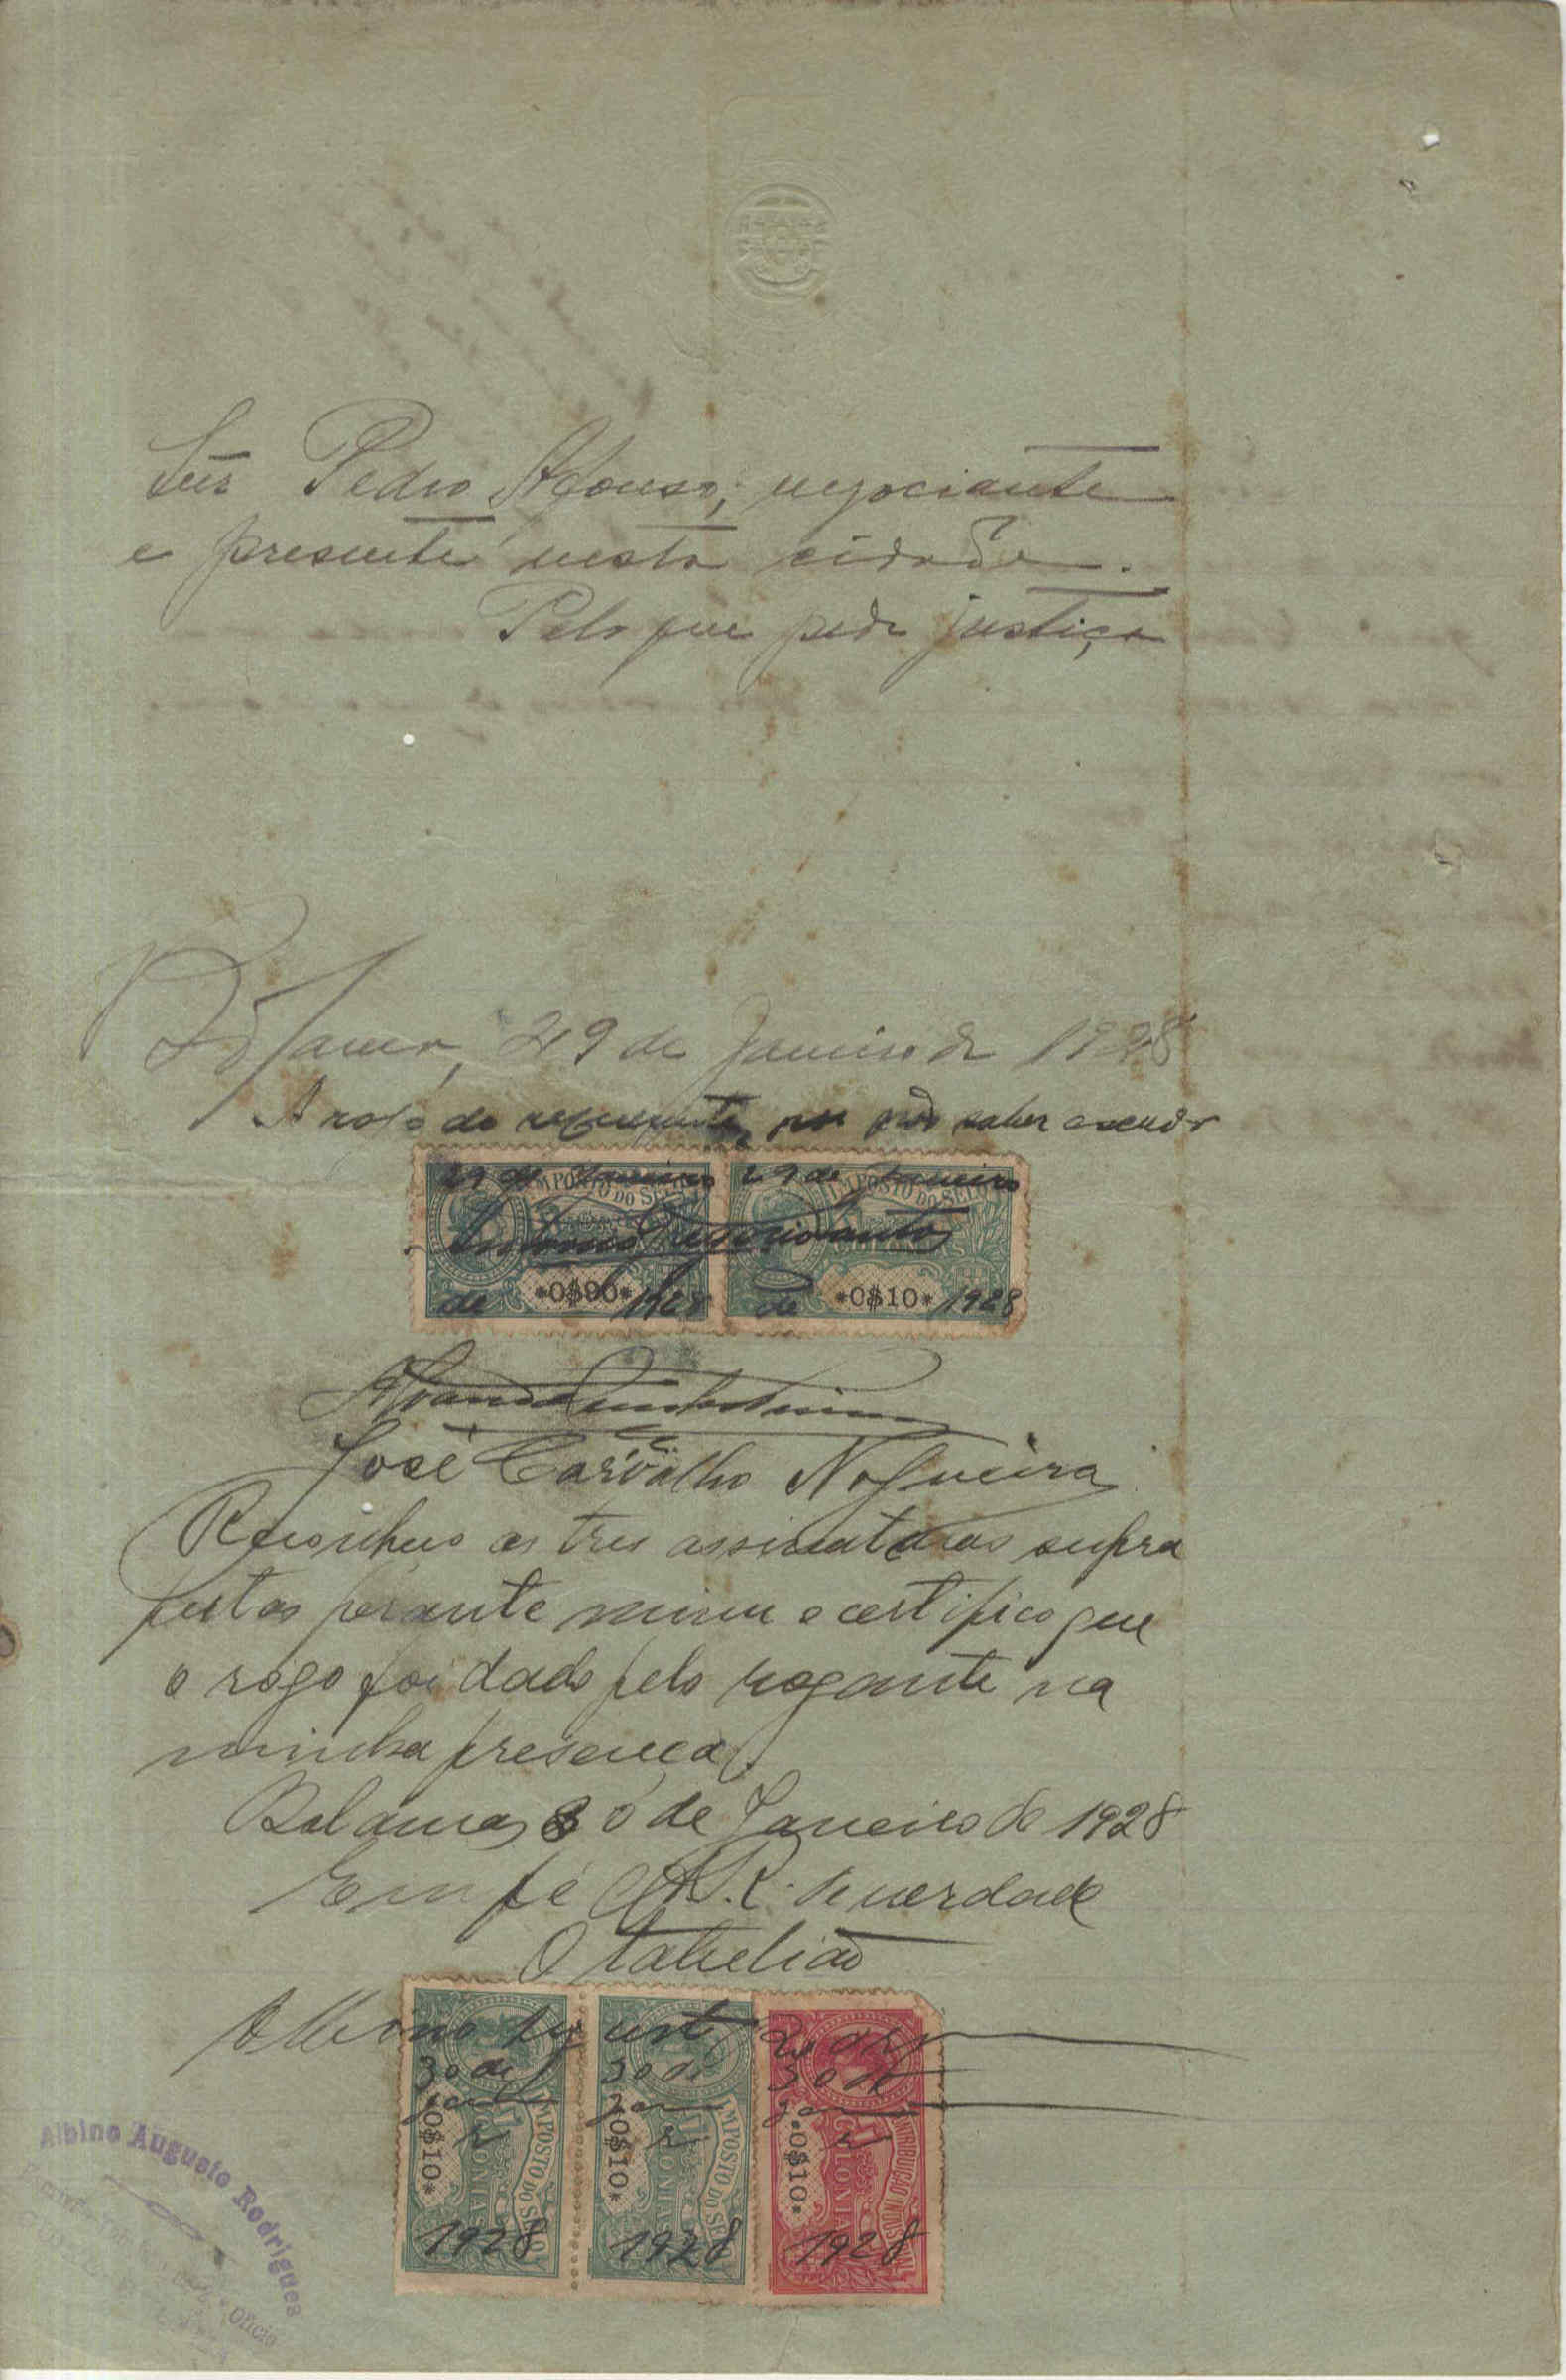 Snr Pedro Afonso, negociante
e presente nesta cidade.
Pelo que pede justiça
Bolama, 29 de Janeiro de 1928
A rogo do requerente, por não saber escrever
29 de Janeiro 29 de Janeiro
IMPOSTO DO SELO IMPOSTO DO SELO
COLONIAS
Antonio Santos
de *0$90* 1928 de *0$10* 1928
José Carvalho Nogueira
Reconheço as tres assinaturas supra
feitas perante mim e certifico que
o rogo foi dado pelo rogante na
minha presença.
Bolama, 30 de Janeiro de 1928
Em fé de verdade
O tabelião
Albino Augusto Rodrigues
30 de 30 de 30 de
jan jan jan
*0$10* *0$10* *0$10*
IMPOSTO DO SELO IMPOSTO DO SELO CONTRIBUIÇÃO INDUSTRIAL
COLONIAS COLONIAS COLONIAS
1928 1928 1928
Albino Augusto Rodrigues
Oficio